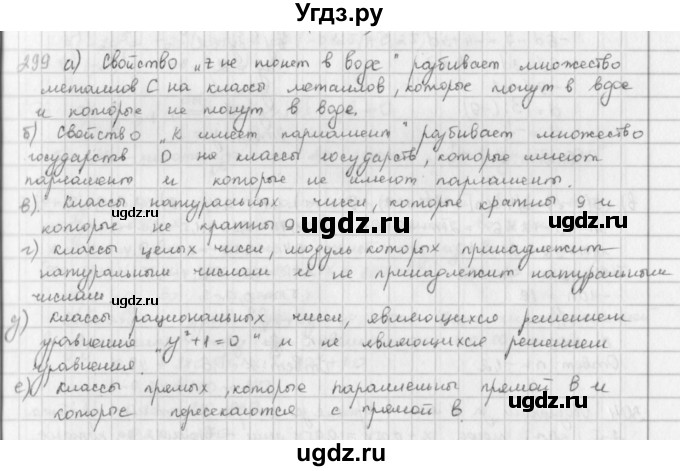 Угдз.ру
299 а) Свойство „z не тонет в воде" разбивает множество
металлов С на классы металлов, которые тонут в воде
и которые не тонут в воде.
б) Свойство „k имеет парламент" разбивает множество
государств D на классы государств, которые имеют
парламент и которые не имеют парламенты.
в) Классы натуральных чисел, которые кратны 9 и
которые не кратны 9.
uGdz.ru
г) классы целых чисел, модуль которых принадлежит
натуральным числам и не принадлежит натуральным
числам
uGdz.ru
д) классы рациональных чисел, являющихся решением
уравнения „y²+1=0" и не являющихся решением
уравнения.
е) классы прямых, которые параллельны прямой в и
которые пересекаются с прямой в.
uGdz.ru
uGdz.ru
uGdz.ru